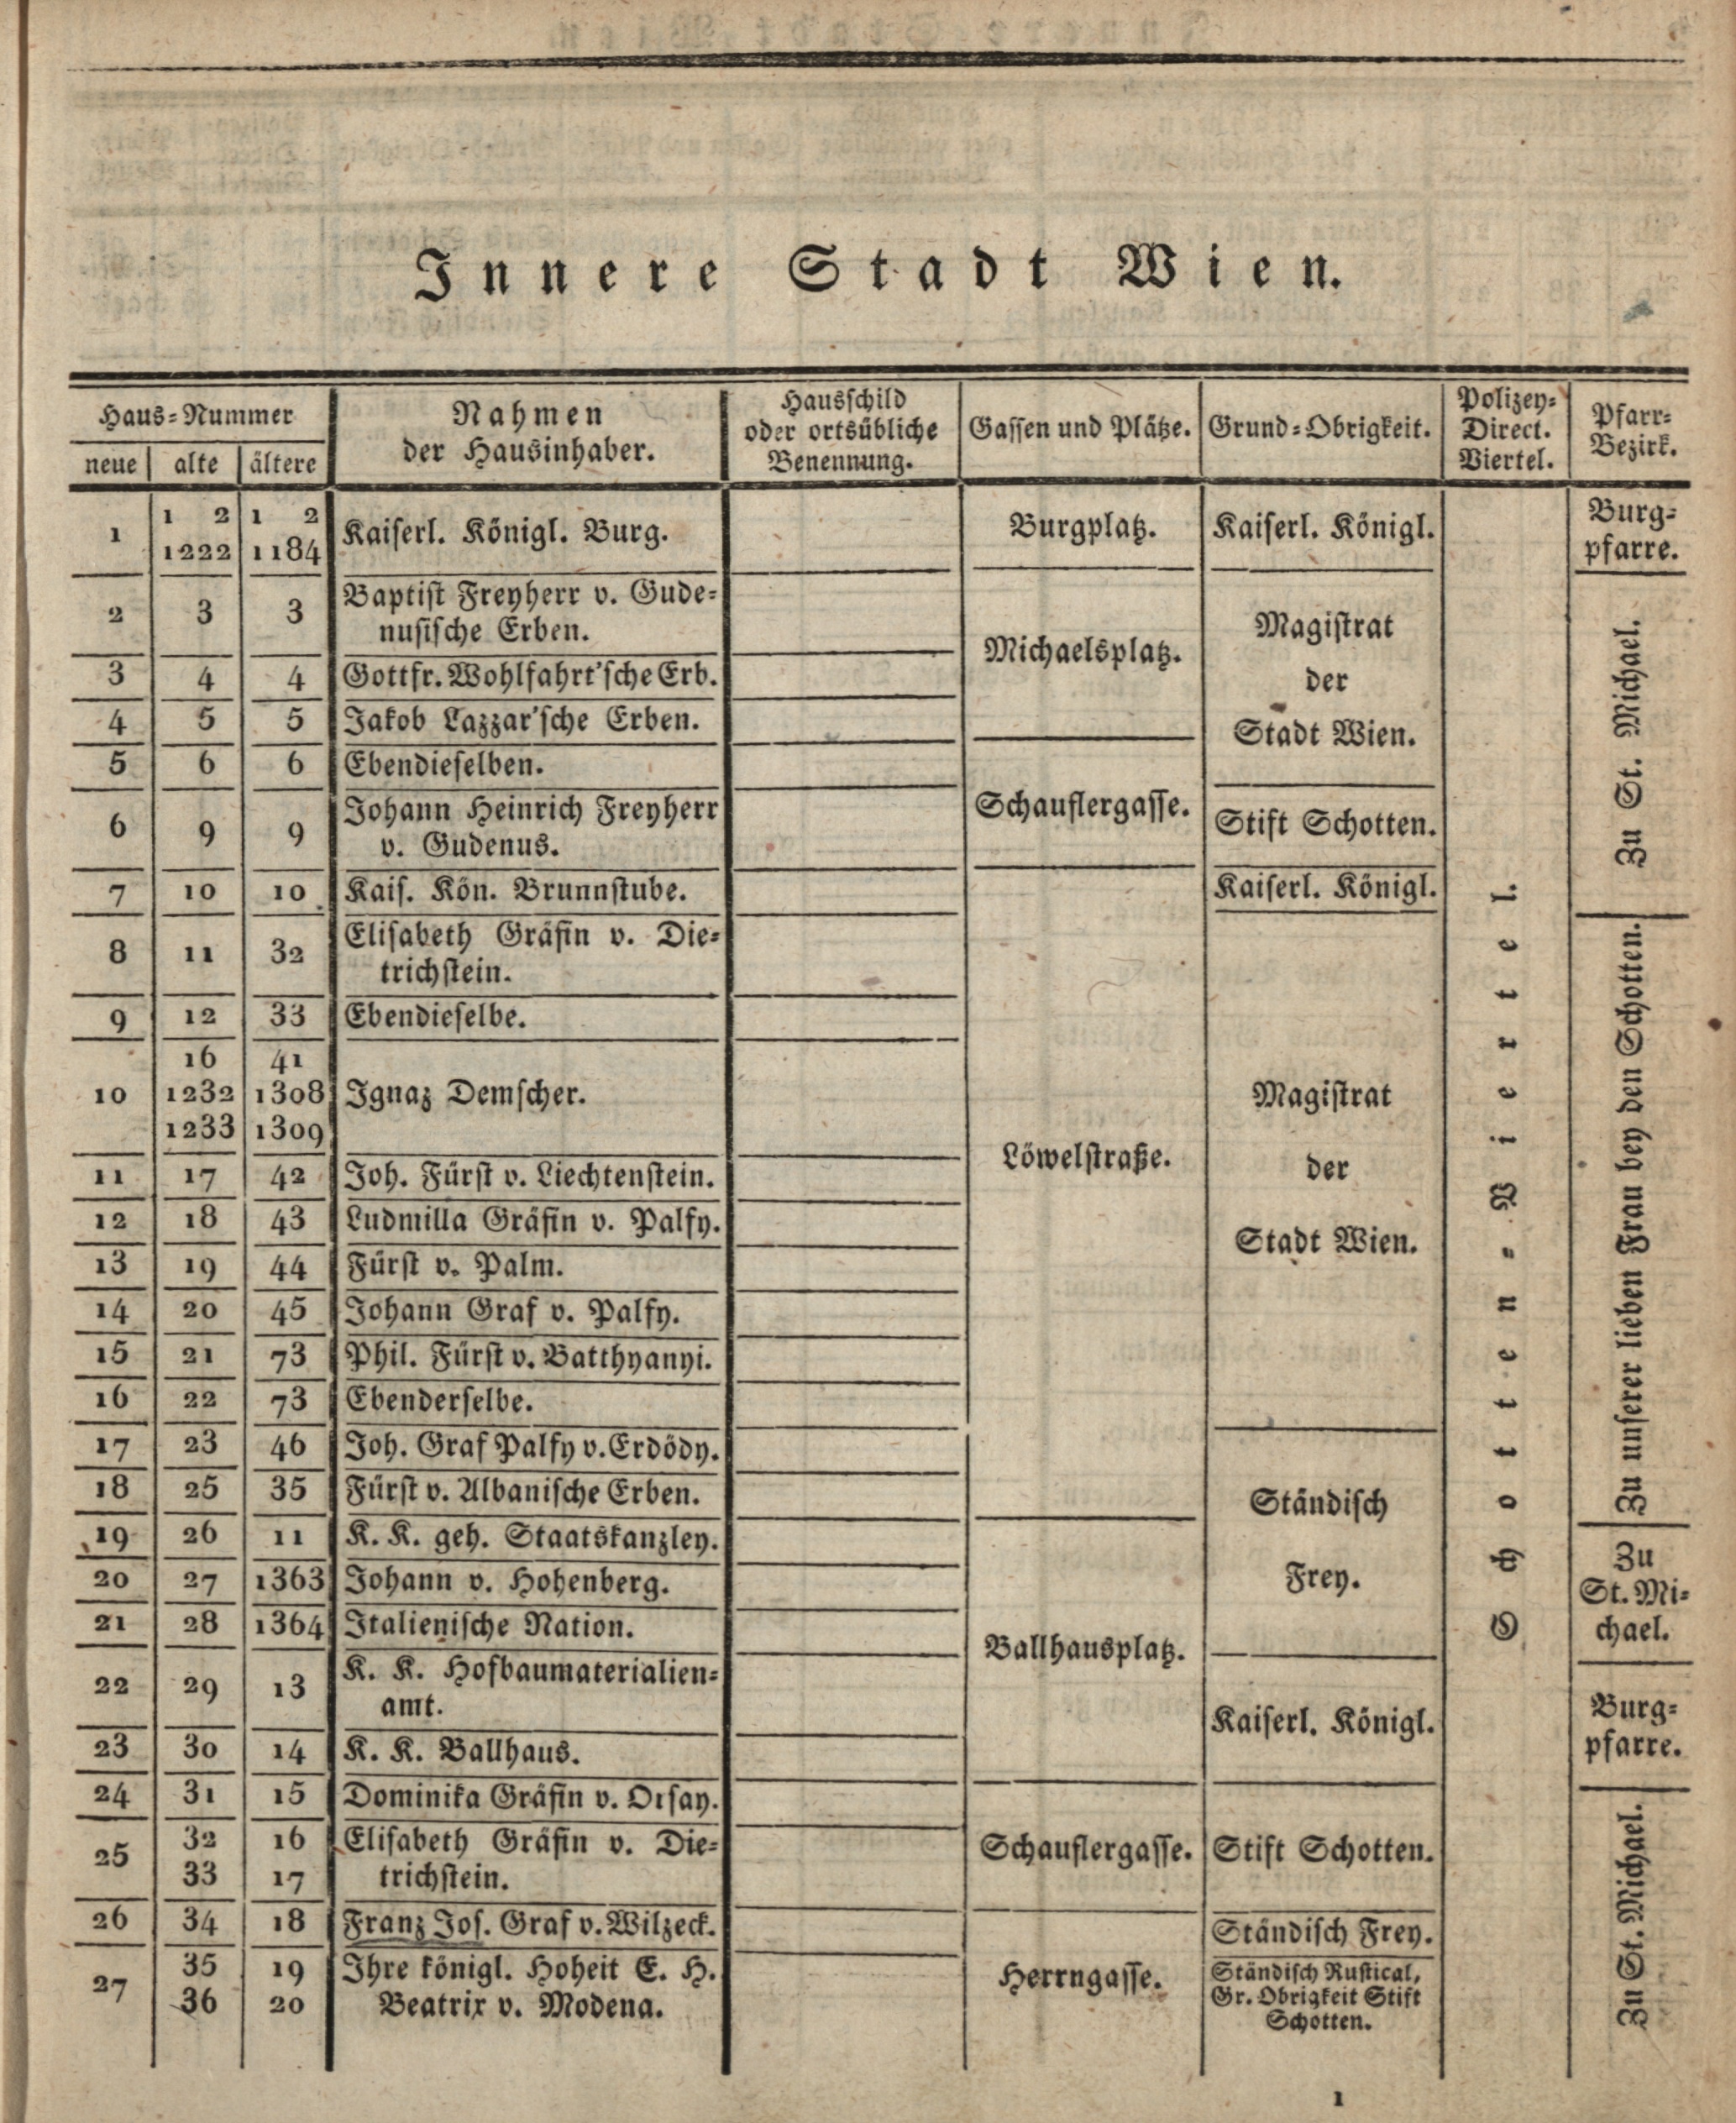 Innere Stadt Wien.
Haus-Nummer
neue alte ältere
Nahmen
der Hausinhaber.
Hausschild
oder ortsübliche
Benennung.
Gassen und Plätze.
Grund-Obrigkeit.
Polizey-
Direct.
Viertel.
Pfarr-
Bezirk.
1 1 2 1 2 Kaiserl. Königl. Burg. Burgplatz. Kaiserl. Königl. Burg-
1222 1184 pfarre.
2 3 3 Baptist Freyherr v. Gude-
nusische Erben.
Michaelsplatz.
Magistrat
der
Stadt Wien.
Zu St. Michael.
3 4 4 Gottfr. Wohlfahrt'sche Erb.
4 5 5 Jakob Lazzar'sche Erben.
5 6 6 Ebendieselben.
Schauflergasse.
6 9 9 Johann Heinrich Freyherr
v. Gudenus.
Stift Schotten.
7 10 10 Kais. Kön. Brunnstube. Kaiserl. Königl.
Schotten-Viertel.
8 11 32 Elisabeth Gräfin v. Die-
trichstein.
Zu unserer lieben Frau bey den Schotten.
9 12 33 Ebendieselbe.
10 16 41 Ignaz Demscher.
1232 1308
1233 1309
Löwelstraße.
Magistrat
der
Stadt Wien.
11 17 42 Joh. Fürst v. Liechtenstein.
12 18 43 Ludmilla Gräfin v. Palfy.
13 19 44 Fürst v. Palm.
14 20 45 Johann Graf v. Palfy.
15 21 73 Phil. Fürst v. Batthyanyi.
16 22 73 Ebenderselbe.
17 23 46 Joh. Graf Palfy v. Erdödy.
Ständisch
Frey.
18 25 35 Fürst v. Albanische Erben.
19 26 11 K. K. geh. Staatskanzley.
Zu
St. Mi-
chael.
20 27 1363 Johann v. Hohenberg.
21 28 1364 Italienische Nation.
Ballhausplatz.
22 29 13 K. K. Hofbaumaterialien-
amt.
Kaiserl. Königl.
Burg-
pfarre.
23 30 14 K. K. Ballhaus.
24 31 15 Dominika Gräfin v. Orsay.
25 32 16 Elisabeth Gräfin v. Die-
33 17 trichstein.
Schauflergasse. Stift Schotten.
Zu St. Michael.
26 34 18 Franz Jos. Graf v. Wilzeck. Ständisch Frey.
27 35 19 Ihre königl. Hoheit E. H.
36 20 Beatrix v. Modena.
Herrngasse.
Ständisch Rustical,
Gr. Obrigkeit Stift
Schotten.
1